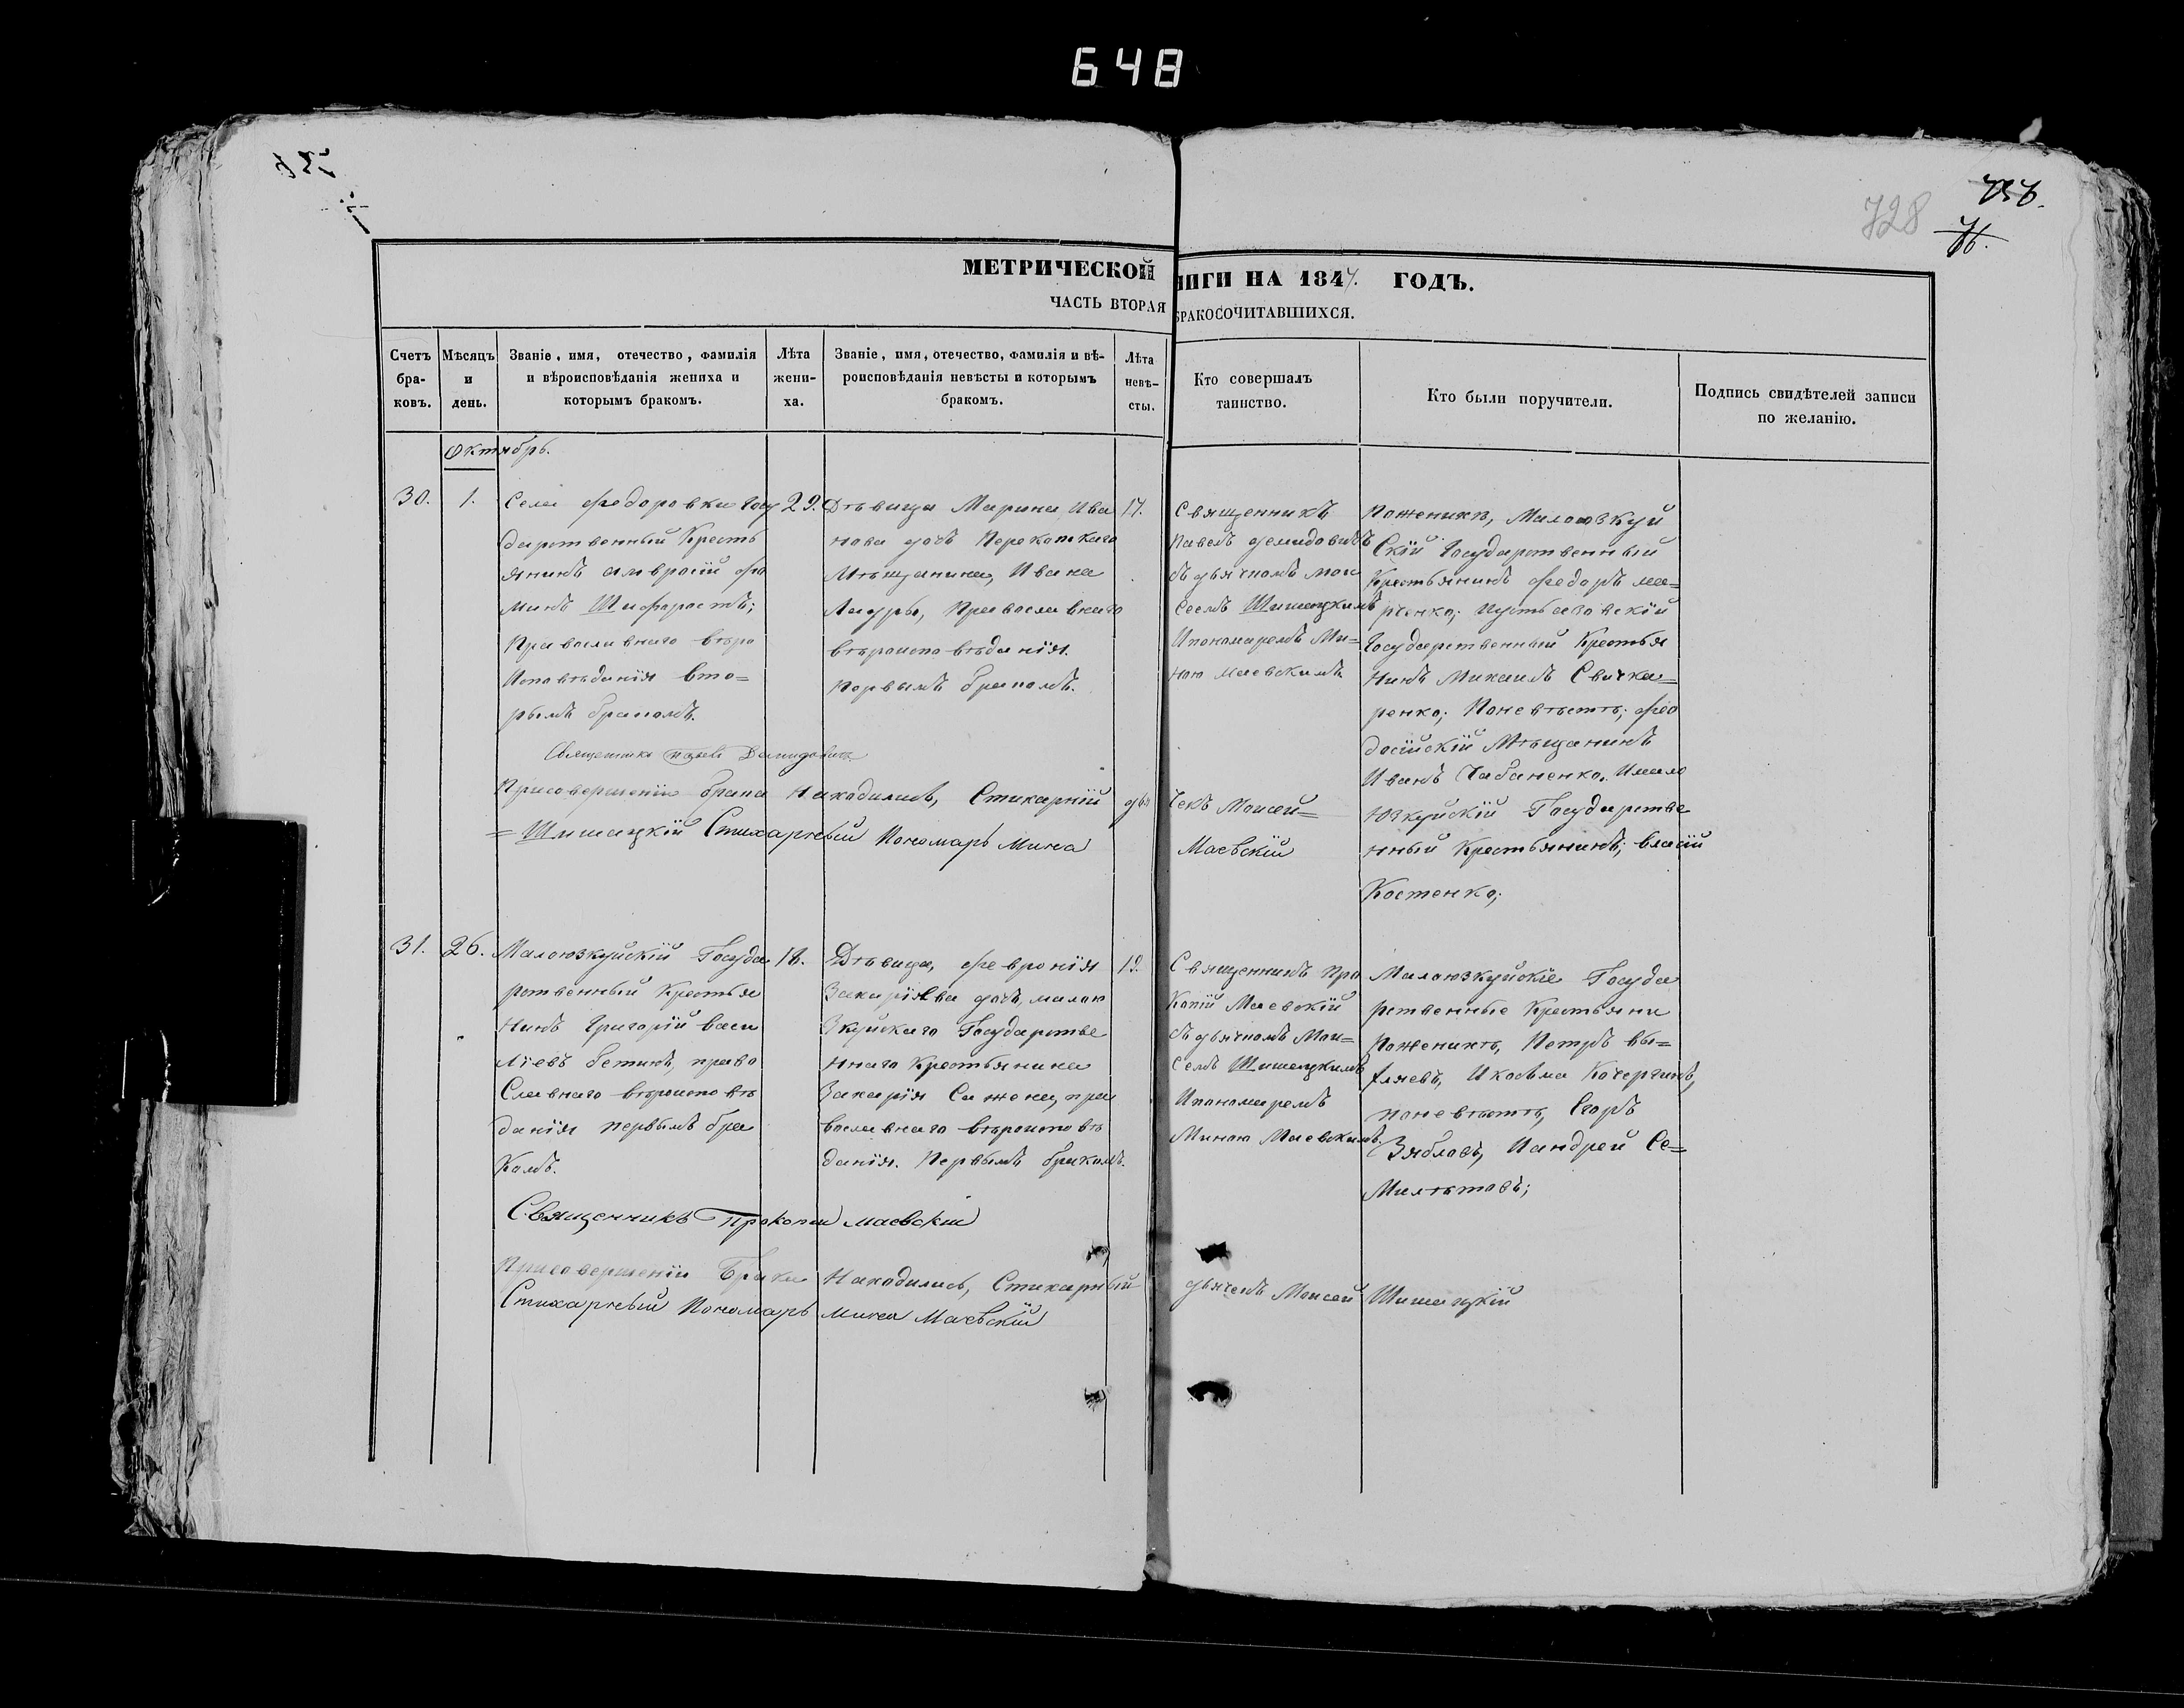 648
728
МЕТРИЧЕСКОЙ
НИГИ НА 1847. ГОДЪ.
ЧАСТЬ ВТОРАЯ
БРАКОСОЧИТАВШИХСЯ.
Счетъ
бра-
ковъ.
Мѣсяцъ
и
день.
Званіе, имя, отечество, фамилія
и вѣроисповѣданія жениха и
которымъ бракомъ.
Лѣта
жени-
ха.
Званіе, имя, отечество, фамилія и вѣ-
роисповѣданія невѣсты и которымъ
бракомъ.
Лѣта
невѣ-
сты.
Кто совершалъ
таинство.
Кто были поручители.
Подпись свидѣтелей записи
по желанію.
Октябрь.
30.
1.
Села Федоровки Госу
дарственный Кресть
янинъ Амвросій Фо
минъ
Православнаго вѣро
исповѣданія вто=
рымъ бракомъ.
29.
Дѣвица Марина Ива
нова дочь Перекопскаго
Мѣщанина, Ивана
Православнаго
вѣроисповѣданія.
Первымъ бракомъ.
17.
Священникъ
Павелъ Демидовичъ
съ дьячкомъ Мои
сеемъ Шишацкимъ
Ипономаремъ Ми=
ною Маевскимъ.
Поженихѣ, Малоюзкуй
скій Государственный
Крестьянинъ Федоръ ма=
рченко;
Государственный Крестья
нинъ Михаилъ Свичка=
ренко; Поневѣстѣ; Фео
досійскій Мѣщанинъ
Иванъ Чабаненко, Имало
юзкуйскій Государстве
нный Крестьянинъ; власій
Костенко;
Священникъ Павелъ Демидовичъ
Присовершеніи брака Находились, Стихарный дья
чекъ Моисей=
=Шишацкій Стихарный Пономарь Мина
Маевскій
31.
26.
Малоюзкуйскій Госуда
рственный Крестья
нинъ Григорій васи
ліевъ право
Славнаго вѣроисповѣ
данія первымъ бра
комъ.
18.
Дѣвица, Февронія
Захаріева дочь, малою
зкуйскаго Государстве
ннаго Крестьянина
Захарія пра
вославнаго вѣроисповѣ
данія. Первымъ бракомъ.
19.
Священникъ Про
копій Маевскій
съ дьячкомъ Мои=
сеемъ Шишацкимъ
Ипономаремъ
Миною Маевскимъ.
Малоюзкуйскіе Госуда
рственные Крестьяни
Поженихѣ, Петръ
Икосьма Кочергинъ,
поневѣстѣ, Егоръ
Зябловъ, Иандрей Се=
Священникъ Прокопій Маевскій
Присовершеніи Брака Находились, Стихарный
дьячекъ Моисей Шишацкій
Стихарный Пономарь Мина Маевскій